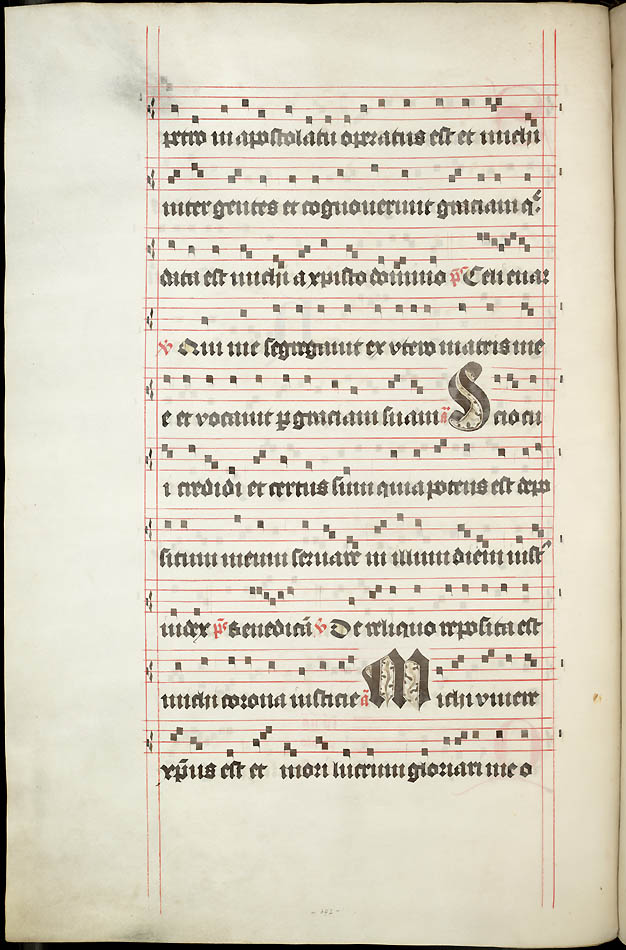 petro in apostolatu operatus est et michi
inter gentes et cognouerunt graciam q̄
data est michi a xpisto domino ps̄ Celi enar
v Qui me segregauit ex vtero matris me
e et vocauit p graciam suam ā Scio cu
i credidi et certus sum quia potens est depo
situm meum seruare in illum diem iust
iudex ps̄ Benedictū v De reliquo reposita est
michi corona iusticie ā Michi viuere
xp̄us est et mori lucrum gloriari me o